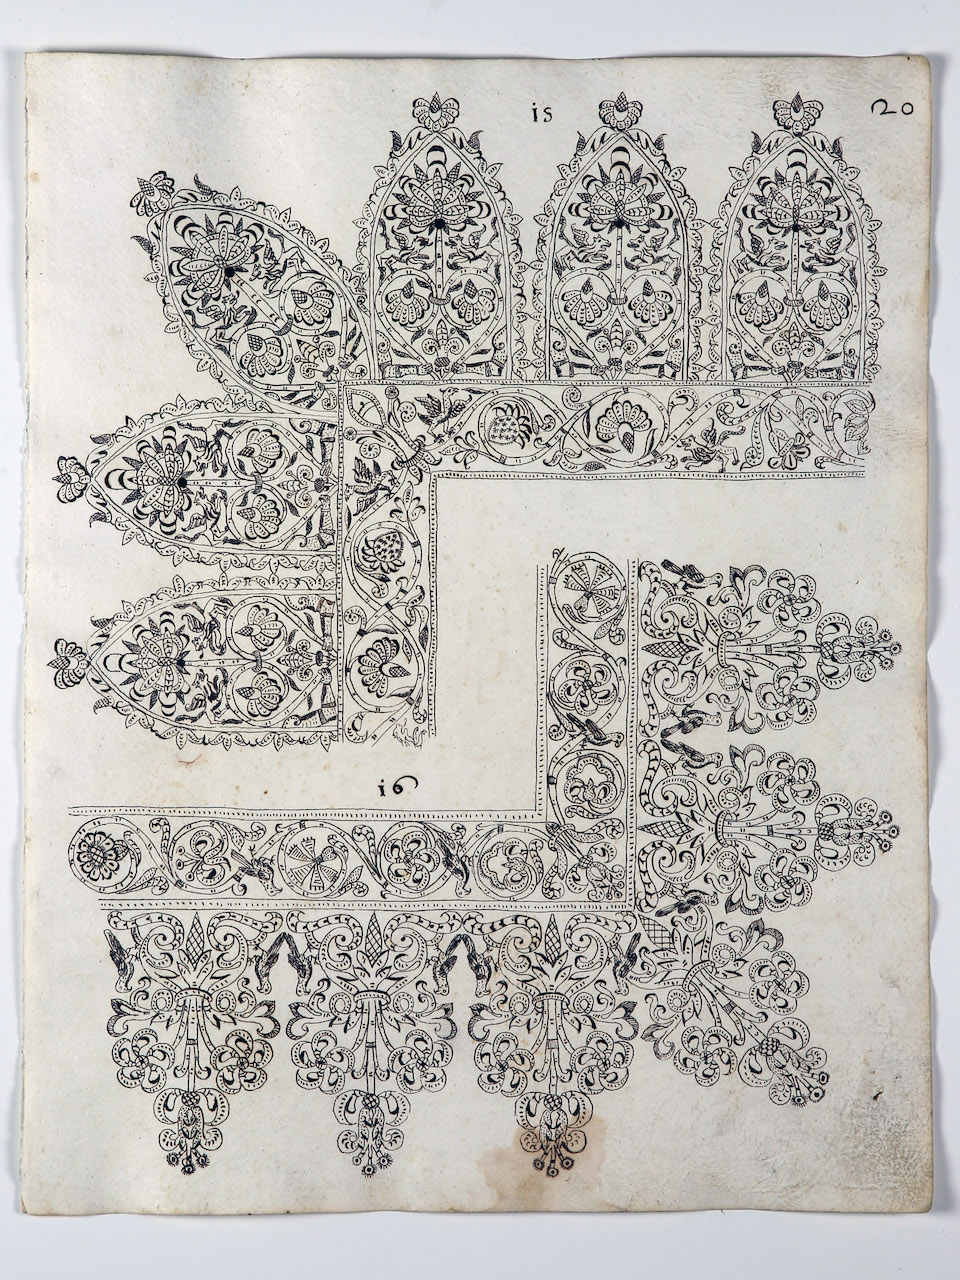 15
20
16